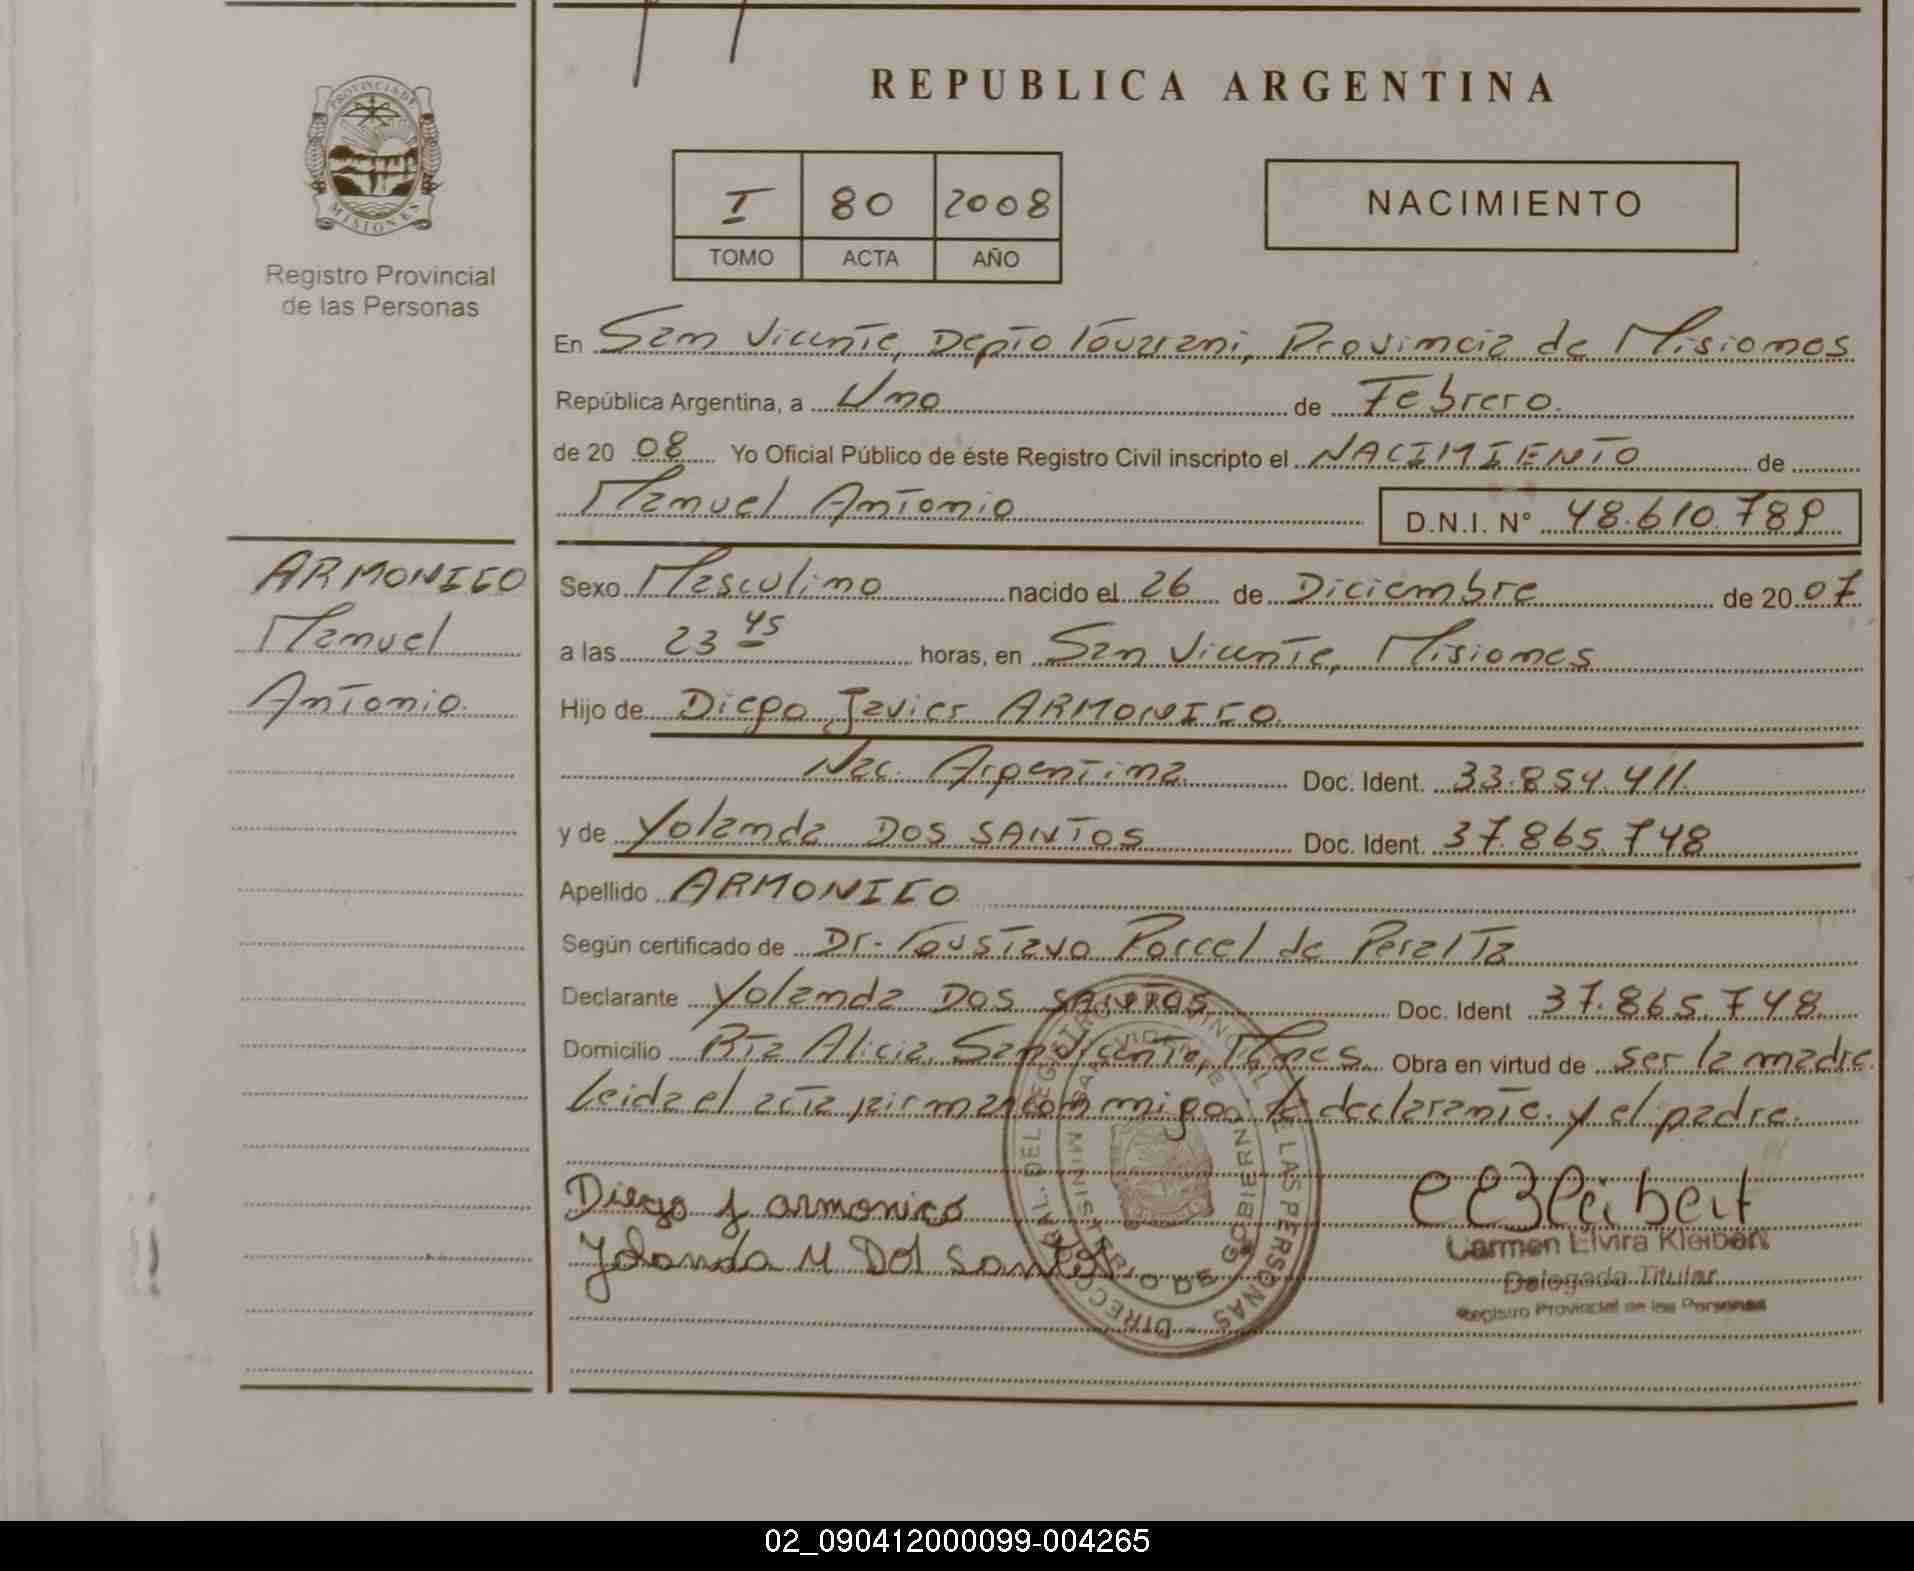 REPUBLICA ARGENTINA
PROVINCIA DE
MISIONES
Registro Provincial
de las Personas
I 80 2008
TOMO ACTA AÑO
NACIMIENTO
En San Vicente, Depto Guarani, Provincia de Misiones
República Argentina, a Uno de Febrero.
de 2008 Yo Oficial Público de éste Registro Civil inscripto el NACIMIENTO de
Manuel Antonio D.N.I. N° 48.610.789
ARMONICO
Manuel
Antonio.
Sexo Masculino nacido el 26 de Diciembre de 2007
a las 23 45 horas, en San Vicente, Misiones
Hijo de Diego Javier ARMONICO.
Nac. Argentina. Doc. Ident. 33.854.411.
y de Yolanda DOS SANTOS Doc. Ident. 37.865.748
Apellido ARMONICO
Según certificado de Dr. Gustavo Porcel de Peralta
Declarante Yolanda DOS SANTOS Doc. Ident 37.865.748.
Domicilio Bta Alicia, San Vicente, Mnes. Obra en virtud de ser la madre.
Leida el acta firman conmigo la declarante y el padre.
Diego J armonico
Yolanda M Dos Santos
Carmen Elvira Kleibert
Delegada Titular
Registro Provincial de las Personas
MINISTERIO DE GOBIERNO
02_090412000099-004265